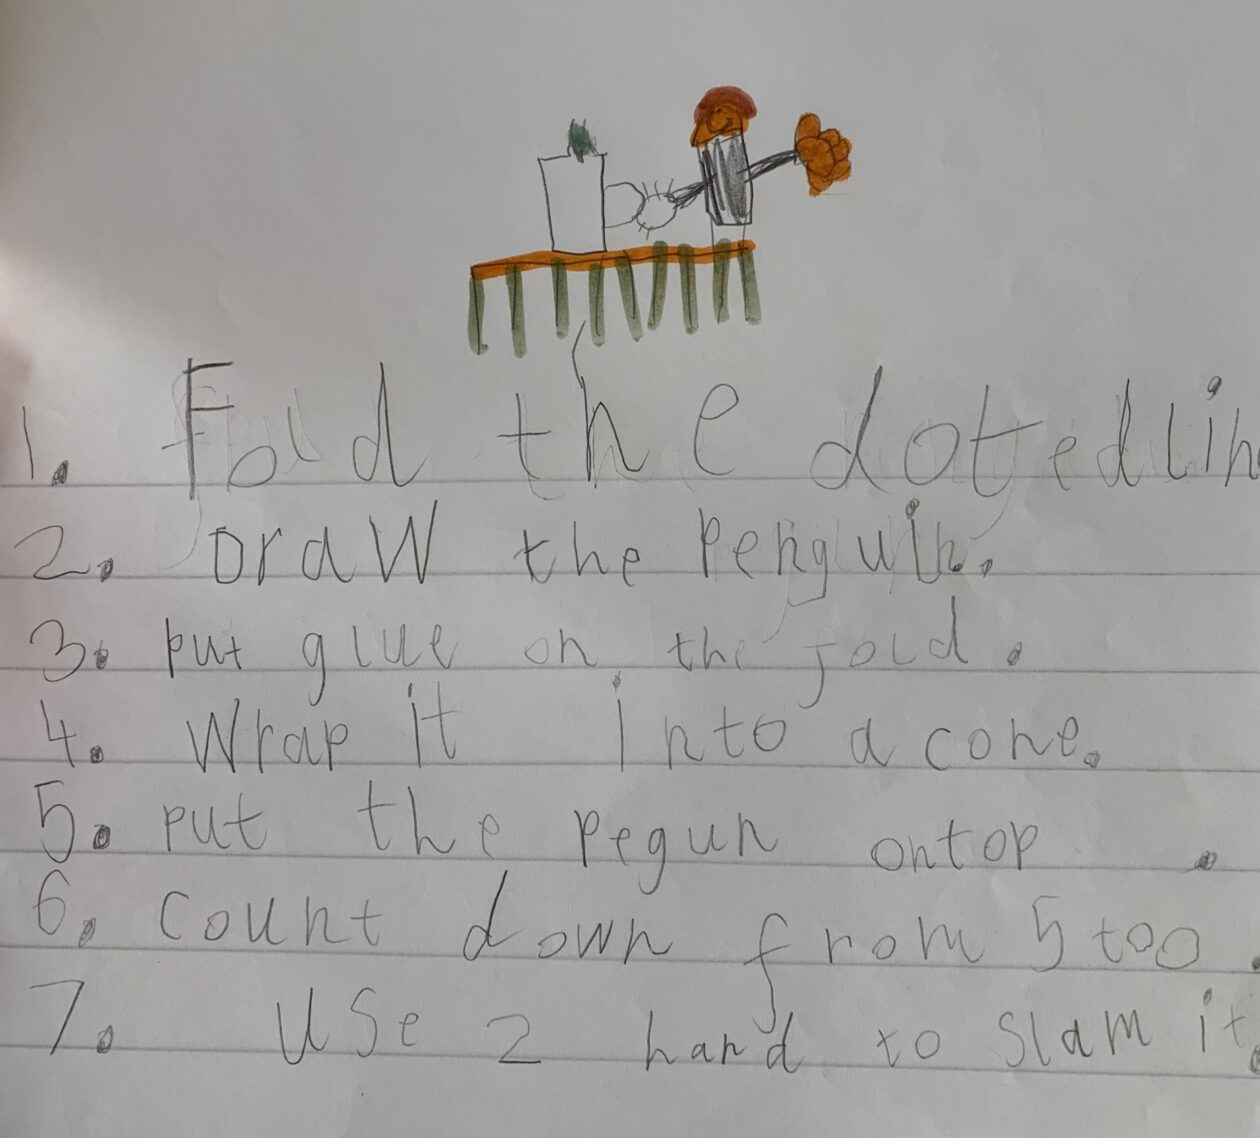 1. Fold the dotted lin
2. Draw the Penguin.
3. put glue on the fold.
4. Wrap it into a cone.
5. put the pegun ontop .
6. count down from 5 too.
7. Use 2 hand to slam it.